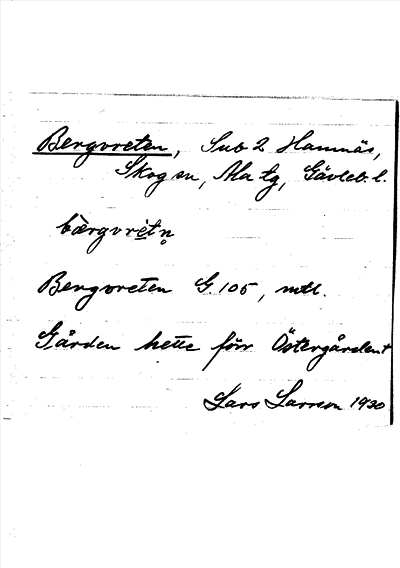 Bergvreten, Sub 2 Hamnäs,
Skog sn, Ma tg, Gävleb. l.
bærgvrèt n̥
Bergvreten G. 105, mtl.
Gården hette förr Östergården
Lars Larsson 1930